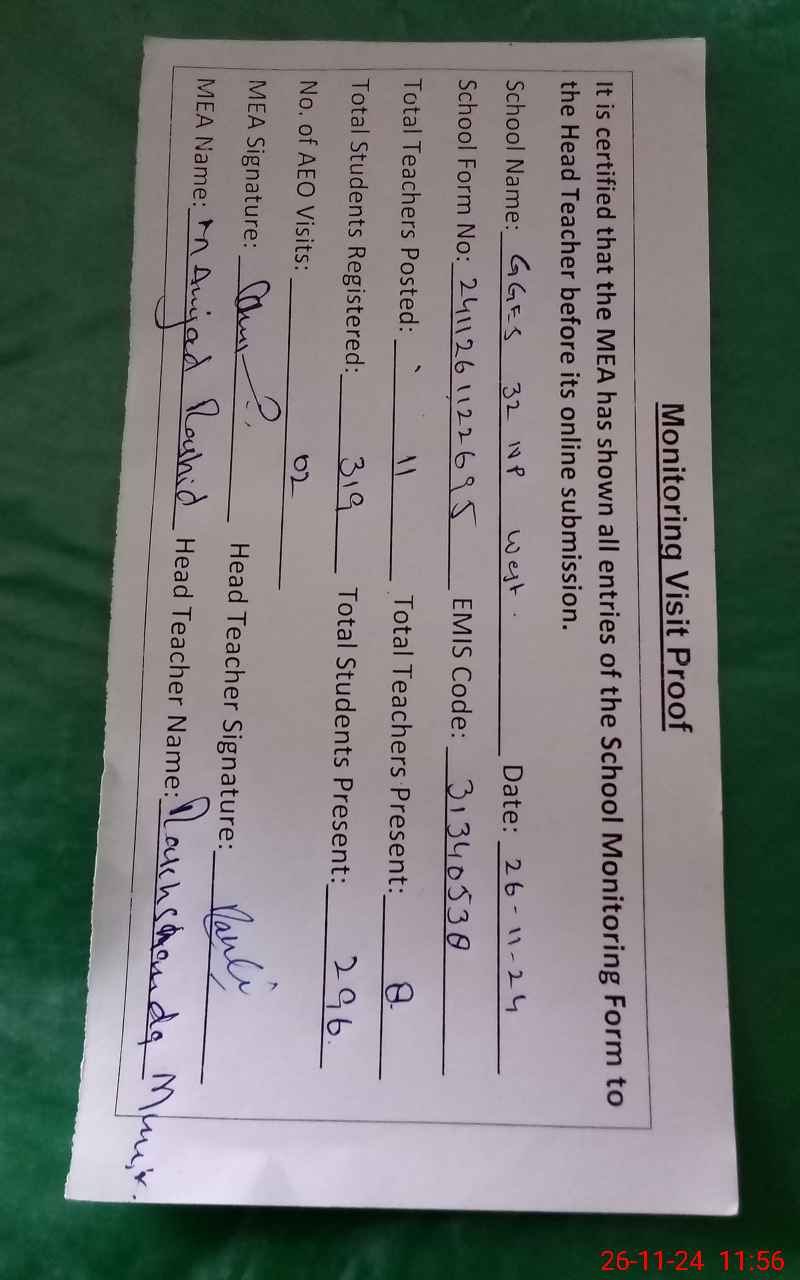 Monitoring Visit Proof
It is certified that the MEA has shown all entries of the School Monitoring Form to
the Head Teacher before its online submission.
School Name: GGES 32 NP West. Date: 26-11-24
School Form No: 2411261122695 EMIS Code: 31340538
Total Teachers Posted: 11 Total Teachers Present: 8
Total Students Registered: 319 Total Students Present: 296.
No. of AEO Visits: 02
MEA Signature: Head Teacher Signature:
MEA Name: M Amjad Rashid Head Teacher Name:
26-11-24 11:56